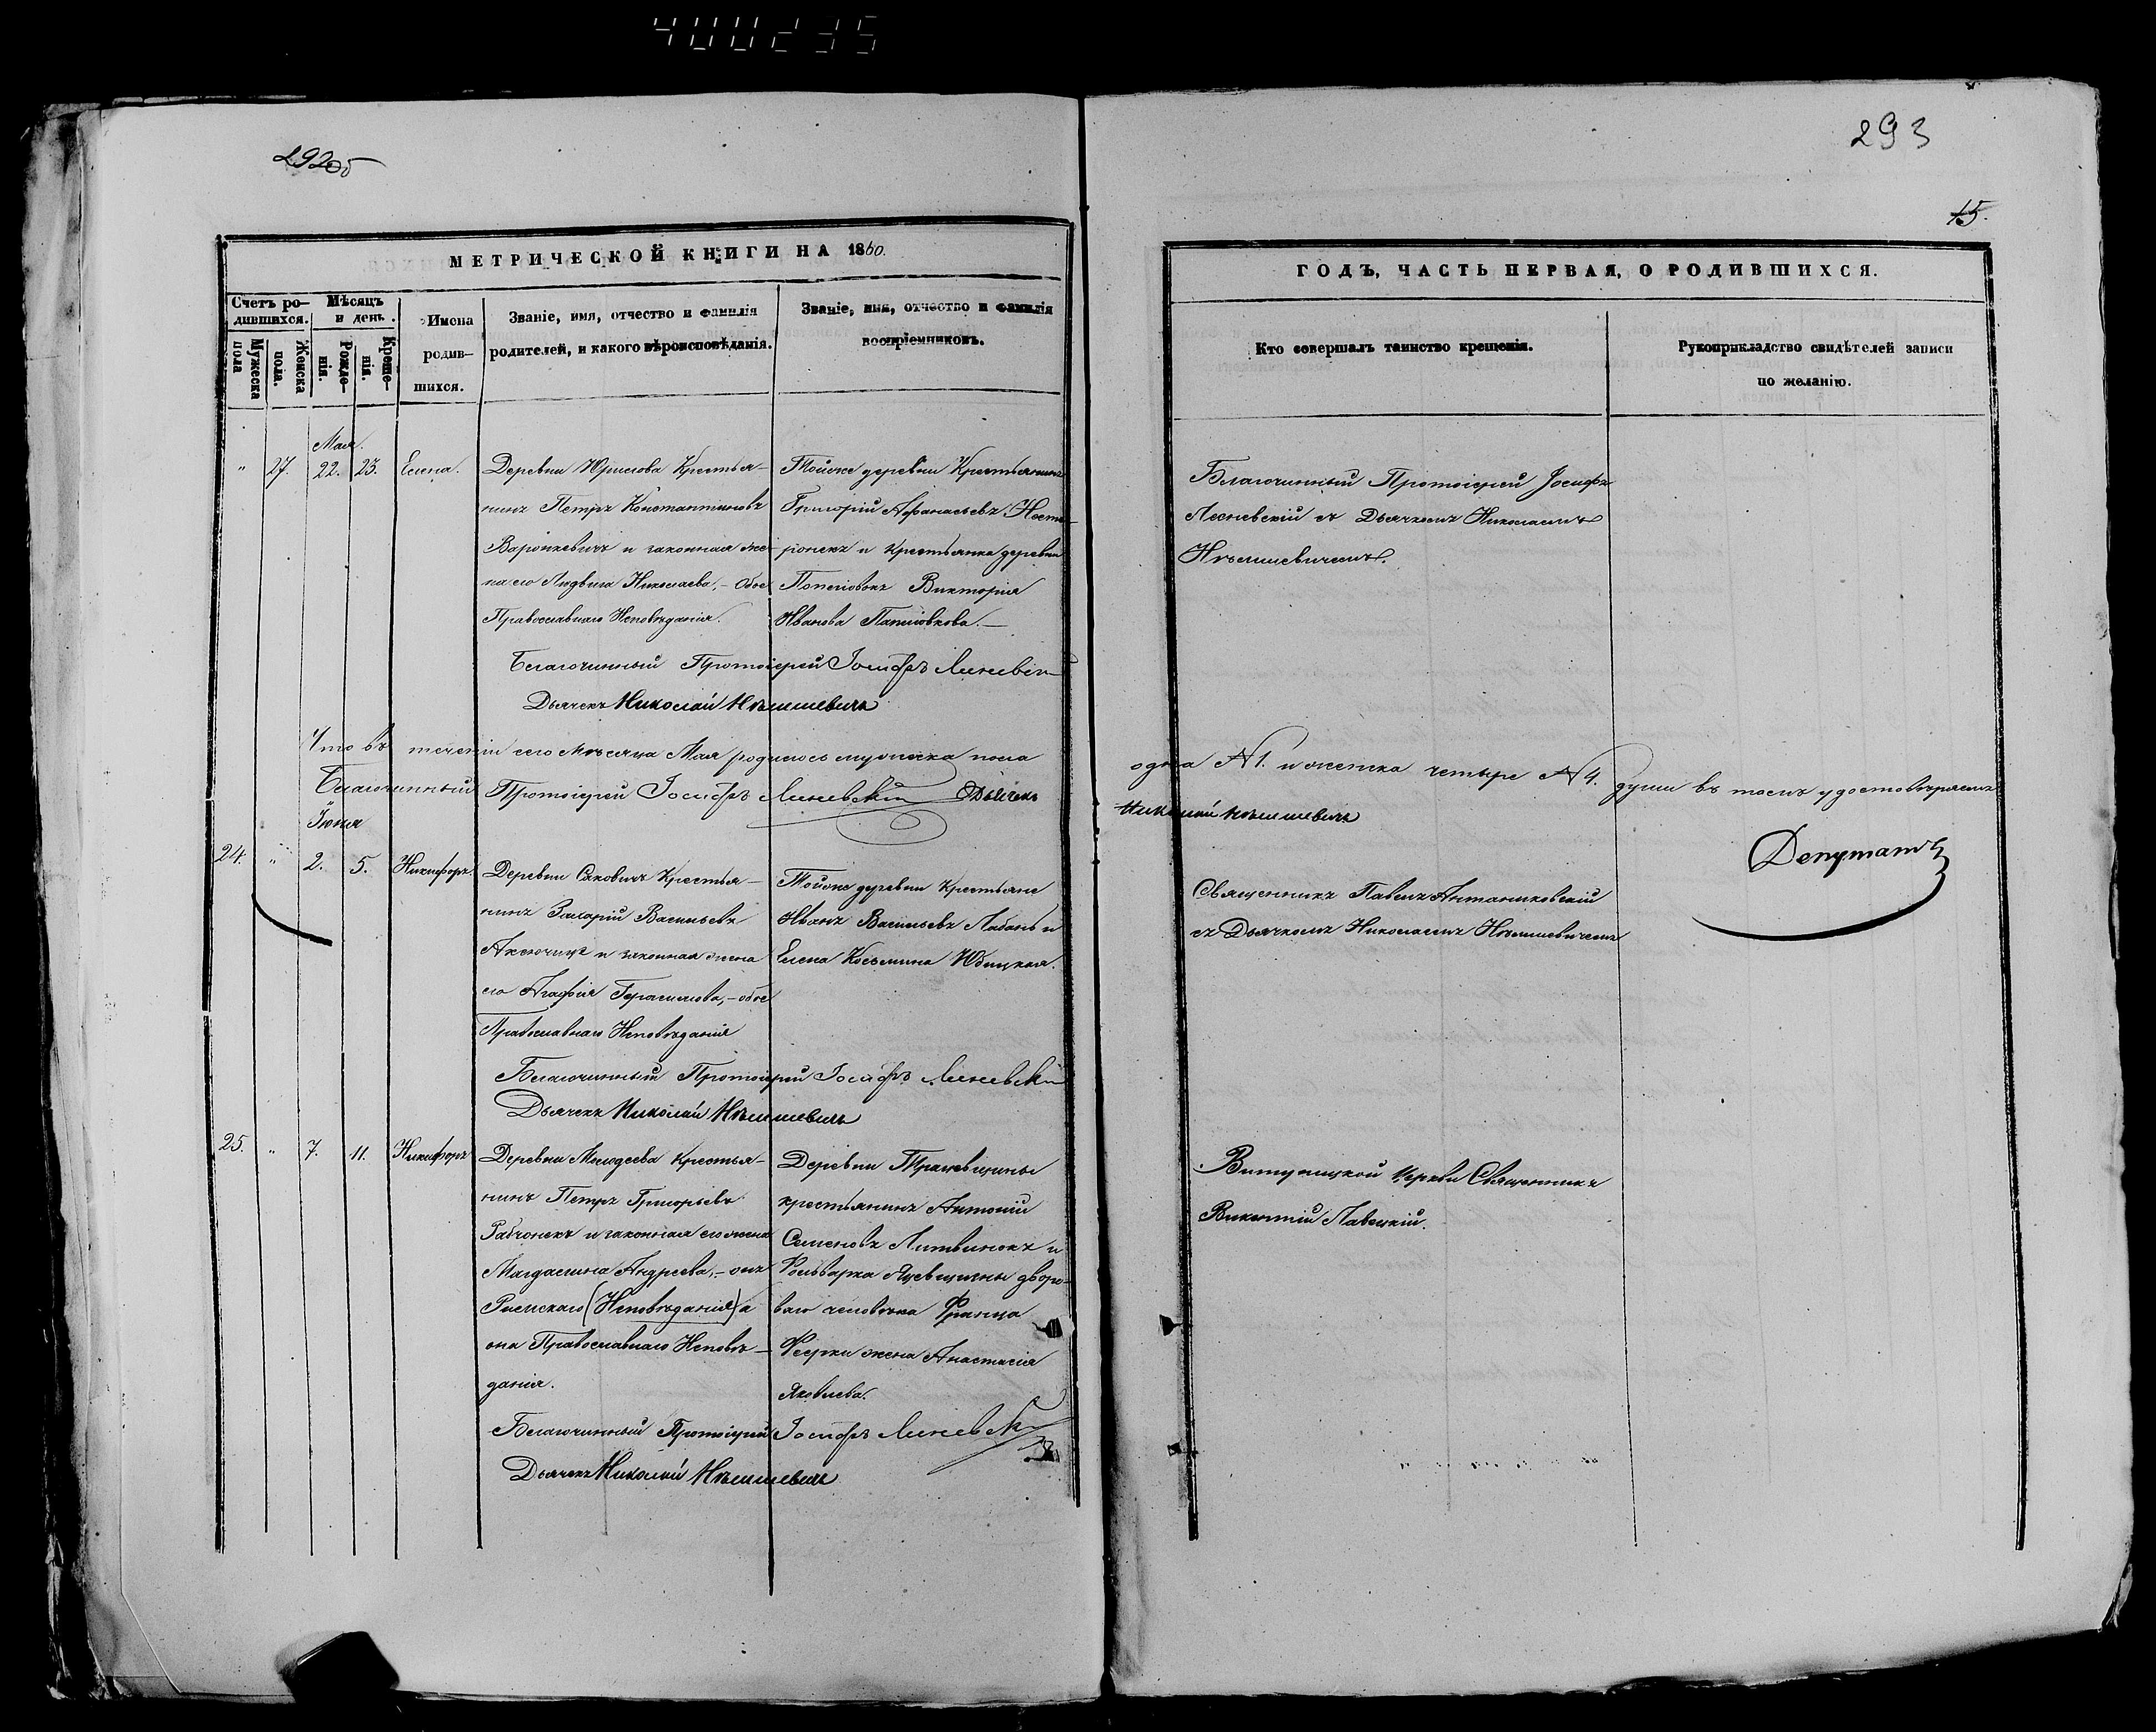 292об
293
15.
МЕТРИЧЕСКОЙ КНИГИ НА 1860.
ГОДЪ, ЧАСТЬ ПЕРВАЯ, О РОДИВШИХСЯ.
Счетъ ро-
дившихся.
Мужеска
пола
Женска
пола.
Мѣсяцъ
и день.
Рожде-
нія.
Креще-
нія.
Имена
родив-
шихся.
Званіе, имя, отчество и фамилія
родителей, и какого вѣроисповѣданія.
Званіе, имя, отчество и фамилія
воспріемниковъ.
Кто совершалъ таинство крещенія.
Рукоприкладство свидѣтелей записи
по желанію.
Мая.
" 27. 22. 23. Елена.
Деревни Крестья-
нинъ Петръ Константиновъ
Варонкевичъ и законная же-
на его Людвига Николаева, – обое
Православнаго Исповѣданія.
Тойже деревни Крестьянинъ
Григорій Афанасьевъ
и Крестьянка деревни
Виктория
Иванова
Благочинный Протоіерей Іосифъ
съ Дьячкомъ Николаемъ
Нѣмшевичемъ.
Благочинный Протоіерей Іосифъ
Дьячекъ Николай Нѣмшевичъ
Что въ теченіи сего мѣсяца Мая родилось мужеска пола
одна N 1. и женска четыре N 4. души въ томъ удостовѣряемъ
Благочинный Протоіерей Іосифъ Дьячекъ
Николай Нѣмшевичъ
Депутатъ
Іюня
24. " 2. 5. Никифоръ.
Деревни Саковичъ Крестья-
нинъ Захарій Васильевъ
и законная жена
его Агафія Герасимова, – обое
Православнаго Исповѣданія
Тойже деревни Крестьяне
Иванъ Васильевъ Лабань и
Елена Косьмина
Священникъ Павелъ
съ Дьячкомъ Николаемъ Нѣмшевичемъ
Благочинный Протоіерей Іосифъ
Дьячекъ Николай Нѣмшевичъ
25. " 7. 11. Никифоръ
Деревни Крестья-
нинъ Петръ Григорьевъ
Рабчонекъ и законная его жена
Магдалина Андреева, – онъ
Римскаго (Исповѣданія) а
она Православнаго Исповѣ-
данія.
Деревни
крестьянинъ Антоній
Семеновъ Литвинокъ и
Фольварка дворо-
ваго человѣка Франца
жена Анастасія
Яковлева.
Церкви Священникъ
Викентій
Благочинный Протоіерей Іосифъ
Дьячекъ Николай Нѣмшевичъ